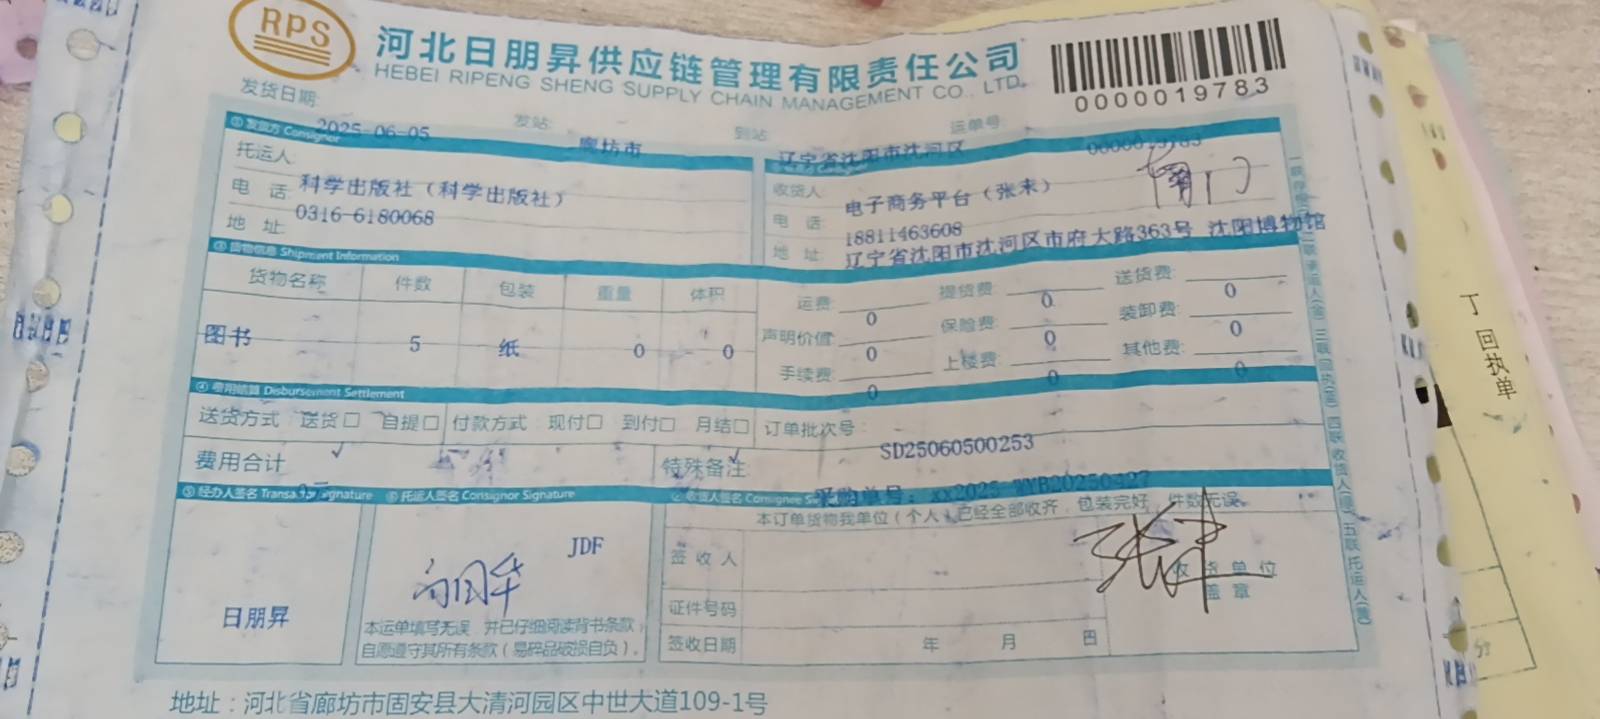 RPS
河北日朋昇供应链管理有限责任公司
HEBEI RIPENG SHENG SUPPLY CHAIN MANAGEMENT CO., LTD.
0000019783
发货日期: 2025-06-05 发站: 廊坊市 到站: 辽宁省沈阳市沈河区 运单号: 0000019783
① 发货方 Consignor
托运人: 科学出版社（科学出版社） 收货人: 电子商务平台（张未）
电 话: 0316-6180068 电 话: 18811463608
地 址: 地 址: 辽宁省沈阳市沈河区市府大路363号 沈阳博物馆
③ 货物信息 Shipment Information
货物名称 件数 包装 重量 体积
图书 5 纸 0 0
运费: 0 提货费: 0 送货费: 0
声明价值: 0 保险费: 0 装卸费: 0
手续费: 0 上楼费: 0 其他费: 0
④ 费用结算 Disbursement Settlement
送货方式 送货□ 自提□ 付款方式 现付□ 到付□ 月结□ 订单批次号: SD25060500253
费用合计 特殊备注:
⑤ 经办人签名 ⑥ 托运人签名 Consignor Signature 收货人签名 Consignee
本订单货物我单位（个人）已经全部收齐，包装完好，件数无误。
JDF
签 收 人
收 货 单 位
盖 章
日朋昇
证件号码
本运单填写无误，并已仔细阅读背书条款，
自愿遵守其所有条款（易碎品破损自负）。
签收日期 年 月 日
地址：河北省廊坊市固安县大清河园区中世大道109-1号
回执单